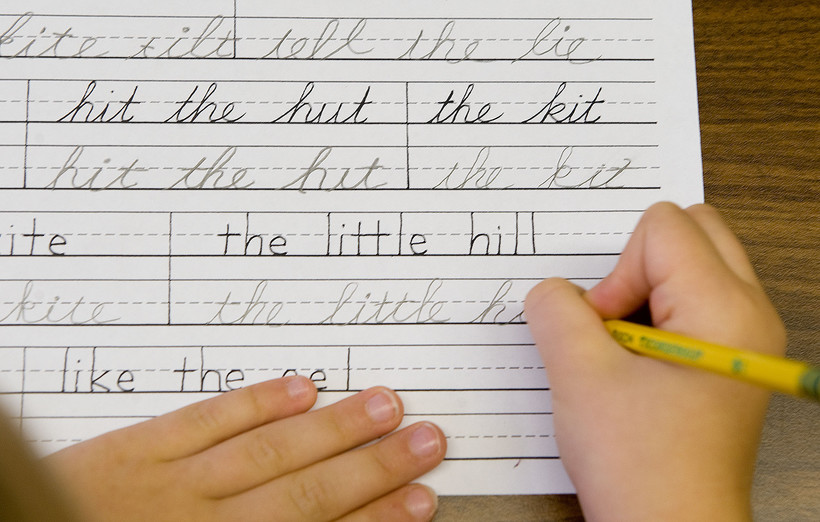 kite tilt tell the lie
hit the hut the kit
hit the hut the kit
the little hill
kite the little hi
like the eel